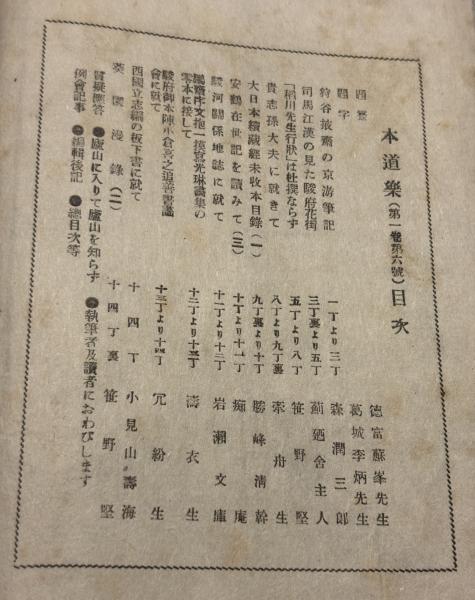 本道樂(第一卷第六號)目次
題簽 德富蘇峯先生
題字 葛城李炳先生
狩谷掖齋の京游筆記 一丁より三丁 森潤三郎
司馬江漢の見た駿府花街 三丁裏より五丁 薊廼舍主人
「稻川先生行狀」は杜撰ならず 五丁より八丁 笹野堅
貴志孫大夫に就きて 八丁より九丁裏 舟生
大日本續藏經未收本目錄(一) 九丁裏より十丁 勝峰淸幹
安鶴在世記を讀みて(三) 十丁より十一丁 痴庵
駿河關係地誌に就て 十一丁より十二丁 岩瀨文庫
抱一摸寫光琳畵集の零本に接して 十二丁より十三丁 濤衣生
駿府御本陣小倉喜之追善書畵會に就て 十三丁より十四丁 冗紛生
西國立志編の板下書に就て 十四丁 小見山壽海
葵園漫錄(二) 十四丁裏 笹野堅
質疑應答 ●廬山に入りて廬山を知らず ●執筆者及讀者におわびします
例會記事 ●編輯後記 ●總目次等